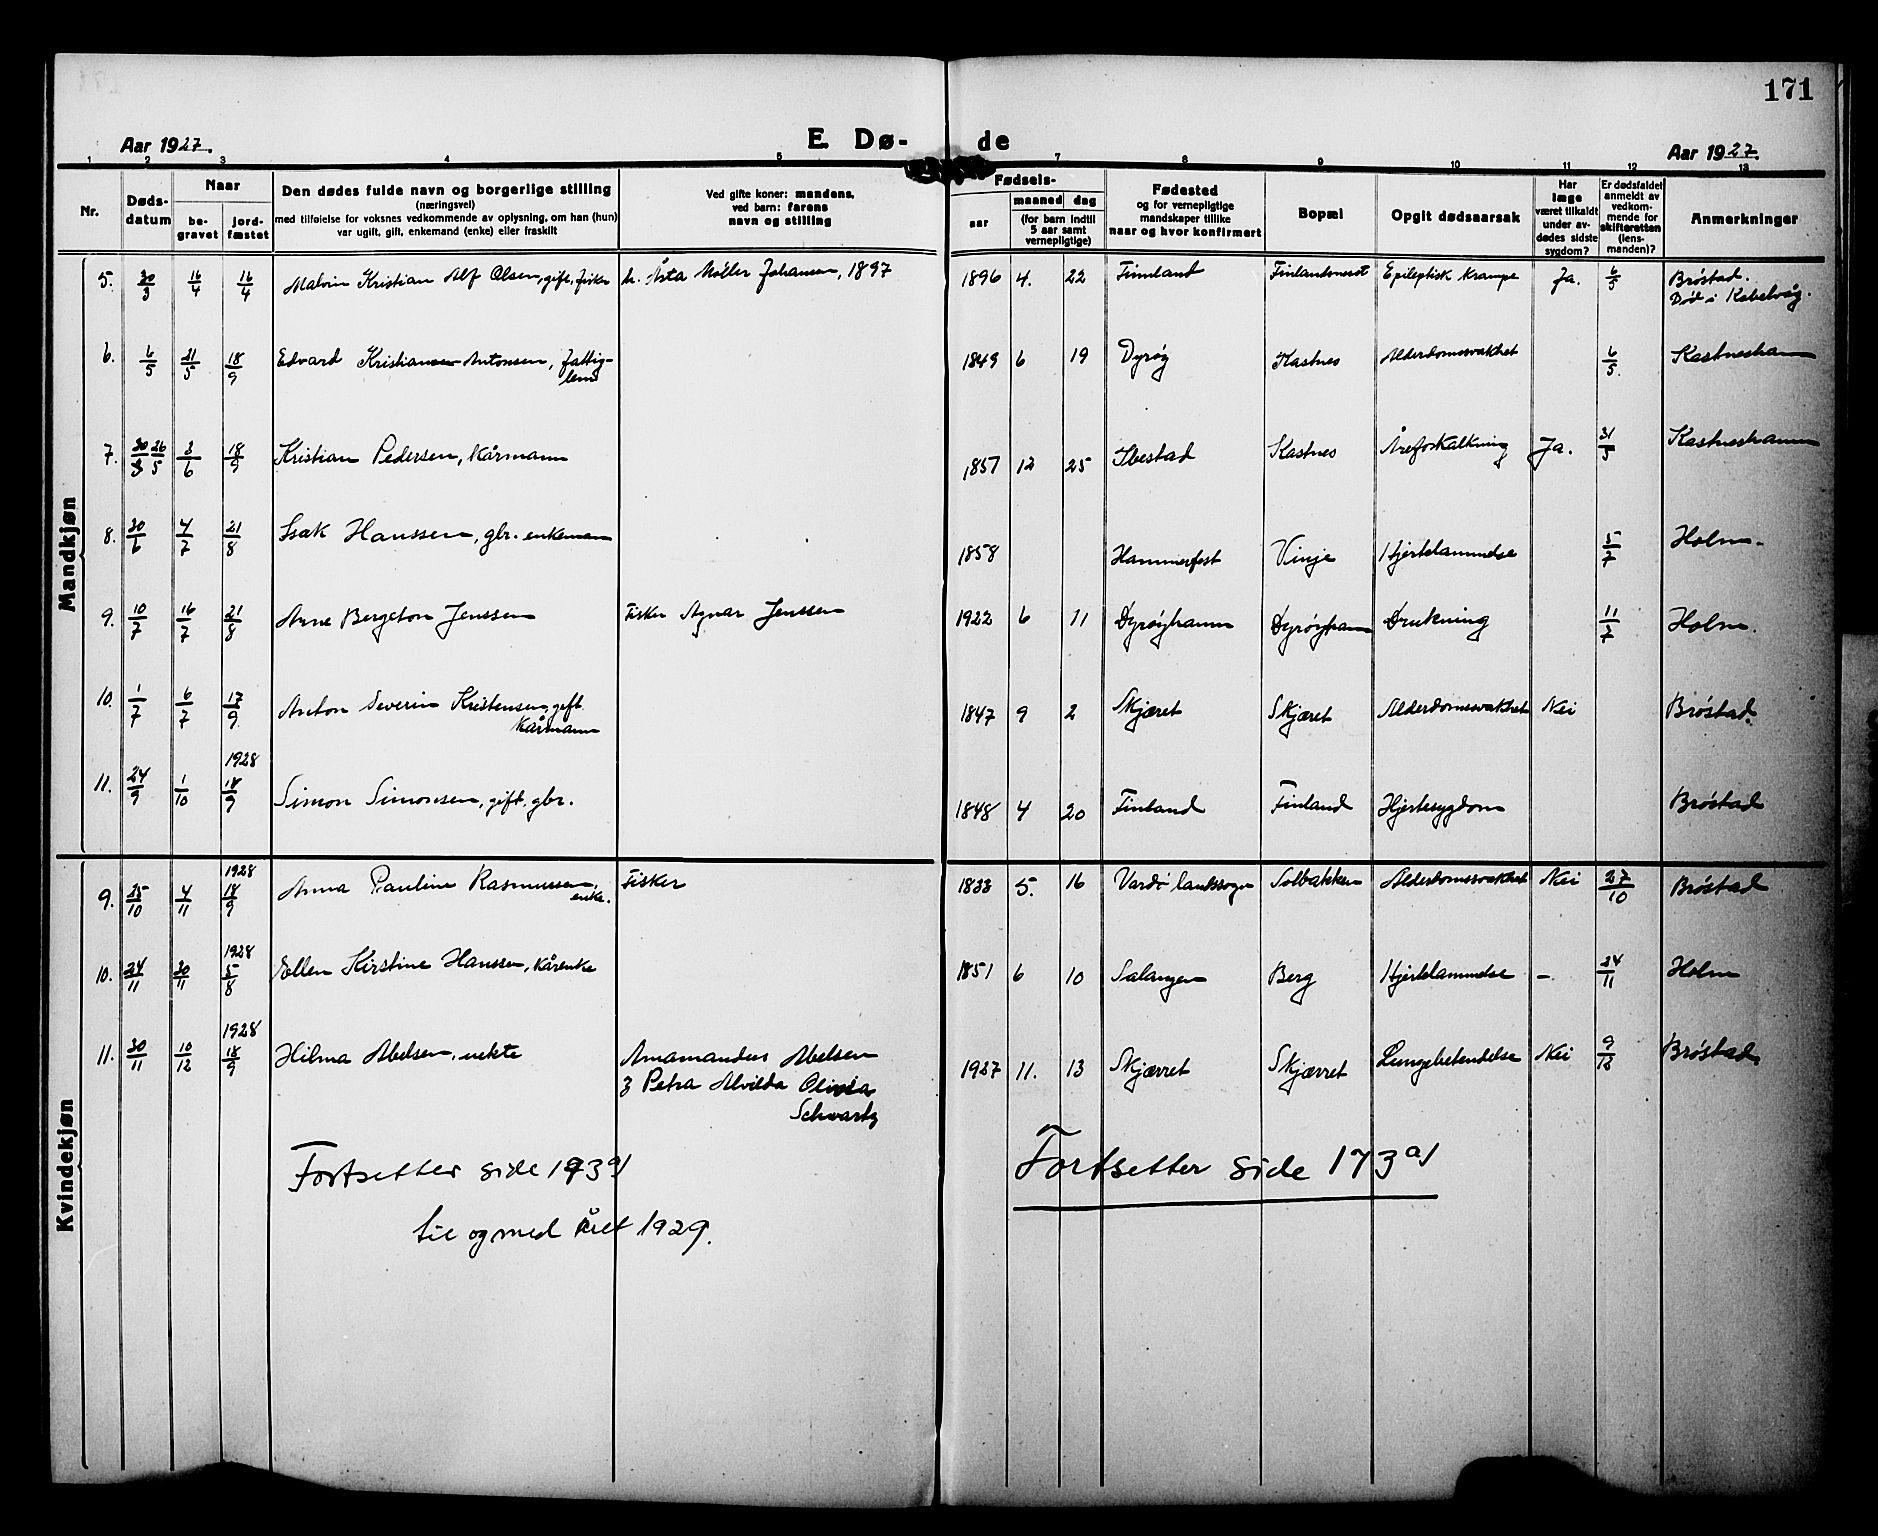 171
Aar 1927.
E. Dø-
de
Aar 1927.
1 2 3 4 5 7 8 9 10 11 12 13
Nr.
Døds-
datum
Naar
be-
gravet
jord-
fæstet
Den dødes fulde navn og borgerlige stilling
(næringsvei)
med tilføielse for voksnes vedkommende av oplysning, om han (hun)
var ugift, gift, enkemand (enke) eller fraskilt
Ved gifte koner: mandens,
ved barn: farens
navn og stilling
Fødsels-
aar
maaned
dag
(for barn indtil
5 aar samt
vernepligtige)
Fødested
og for vernepligtige
mandskaper tillike
naar og hvor konfirmert
Bopæl
Opgit dødsaarsak
Har
læge
været tilkaldt
under av-
dødes sidste
sygdom?
Er dødsfaldet
anmeldt av
vedkom-
mende for
skifteretten
(lens-
manden)?
Anmerkninger
Mandkjøn
5. 30/3 16/4 16/4 Malvin Kristian Alf Olsen, gift, fisker h. Åsta Møller Johansen, 1897 1896 4. 22 Finnland Finlandsneset Epileptisk krampe Ja. 6/5 Brøstad.
Død i Kabelvåg.
6. 6/5 21/5 18/9 Edvard Kristiansen Antonsen, fattig-
lem 1849 6 19 Dyrøy Kastnes Alderdomssvakhet 6/5. Kastneshamn
7. 30/3 26/5 3/6 18/9 Kristian Pedersen, kårmann 1857 12 25 Ibestad Kastnes Åreforkalkning Ja. 31/5 Kastneshamn
8. 30/6 4/7 21/8 Isak Hanssen, gbr. enkeman 1858 Hammerfest Vinje Hjertelammelse 5/7 Holm.
9. 10/7 16/7 21/8 Arne Bergeton Jenssen Fisker Agnar Jenssen 1922 6 11 Dyrøyhamn Dyrøyhamn Drukning 11/7 Holm.
10. 1/7 6/7 17/9 Anton Severin Kristensen, gift.
kårmann 1847 9 2 Skjæret Skjæret Alderdomssvakhet Nei Brøstad.
1928
11. 24/9 1/10 18/9 Simon Simonsen, gift. gbr. 1848 4 20 Finland Finland Hjertesygdom Brøstad
Kvindekjøn
1928
9. 25/10 4/11 18/9 Anna Pauline Rasmussen,
enke. Fisker 1833 5. 16 Vardø landssogn Solbakken Alderdomssvakhet Nei 27/10 Brøstad
1928
10. 24/11 30/11 5/8 Ellen Kirstine Hanssen, kårenke 1851 6 10 Salangen Berg Hjertelammelse - 24/11 Holm
1928
11. 30/11 10/12 18/9 Hilma Abelsen, uekte Amamandus Abelsen
& Petra Alvilda Olivia
Schwartz 1927 11. 13 Skjærret Skjærret Lungebetendelse Nei 9/12 Brøstad
Fortsetter side 173 a/
til og med året 1929.
Fortsetter side 173 a/